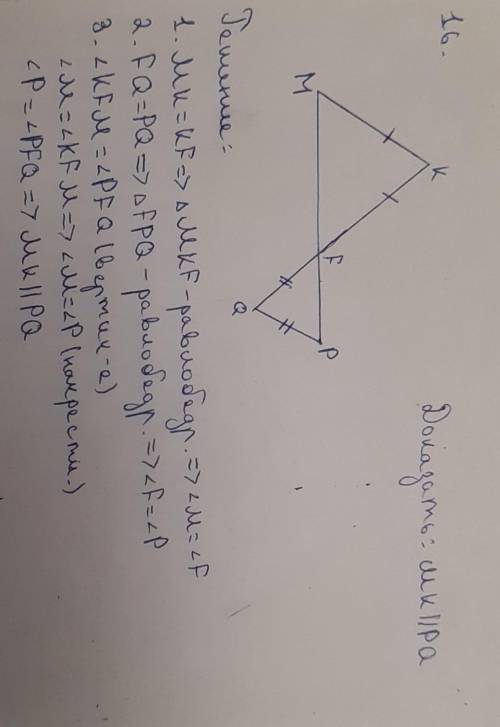 16.
M
K
F
Q
P
Доказать: MK||PQ
Решение:
1. MK=KF=> ΔMKF-равнобедр. => ∠M=∠F
2. FQ=PQ=> ΔFPQ-равнобедр. => ∠F=∠P
3. ∠KFM=∠PFQ (вертик-е)
∠M=∠KFM=> ∠M=∠P (накрестл.)
∠P=∠PFQ => MK||PQ